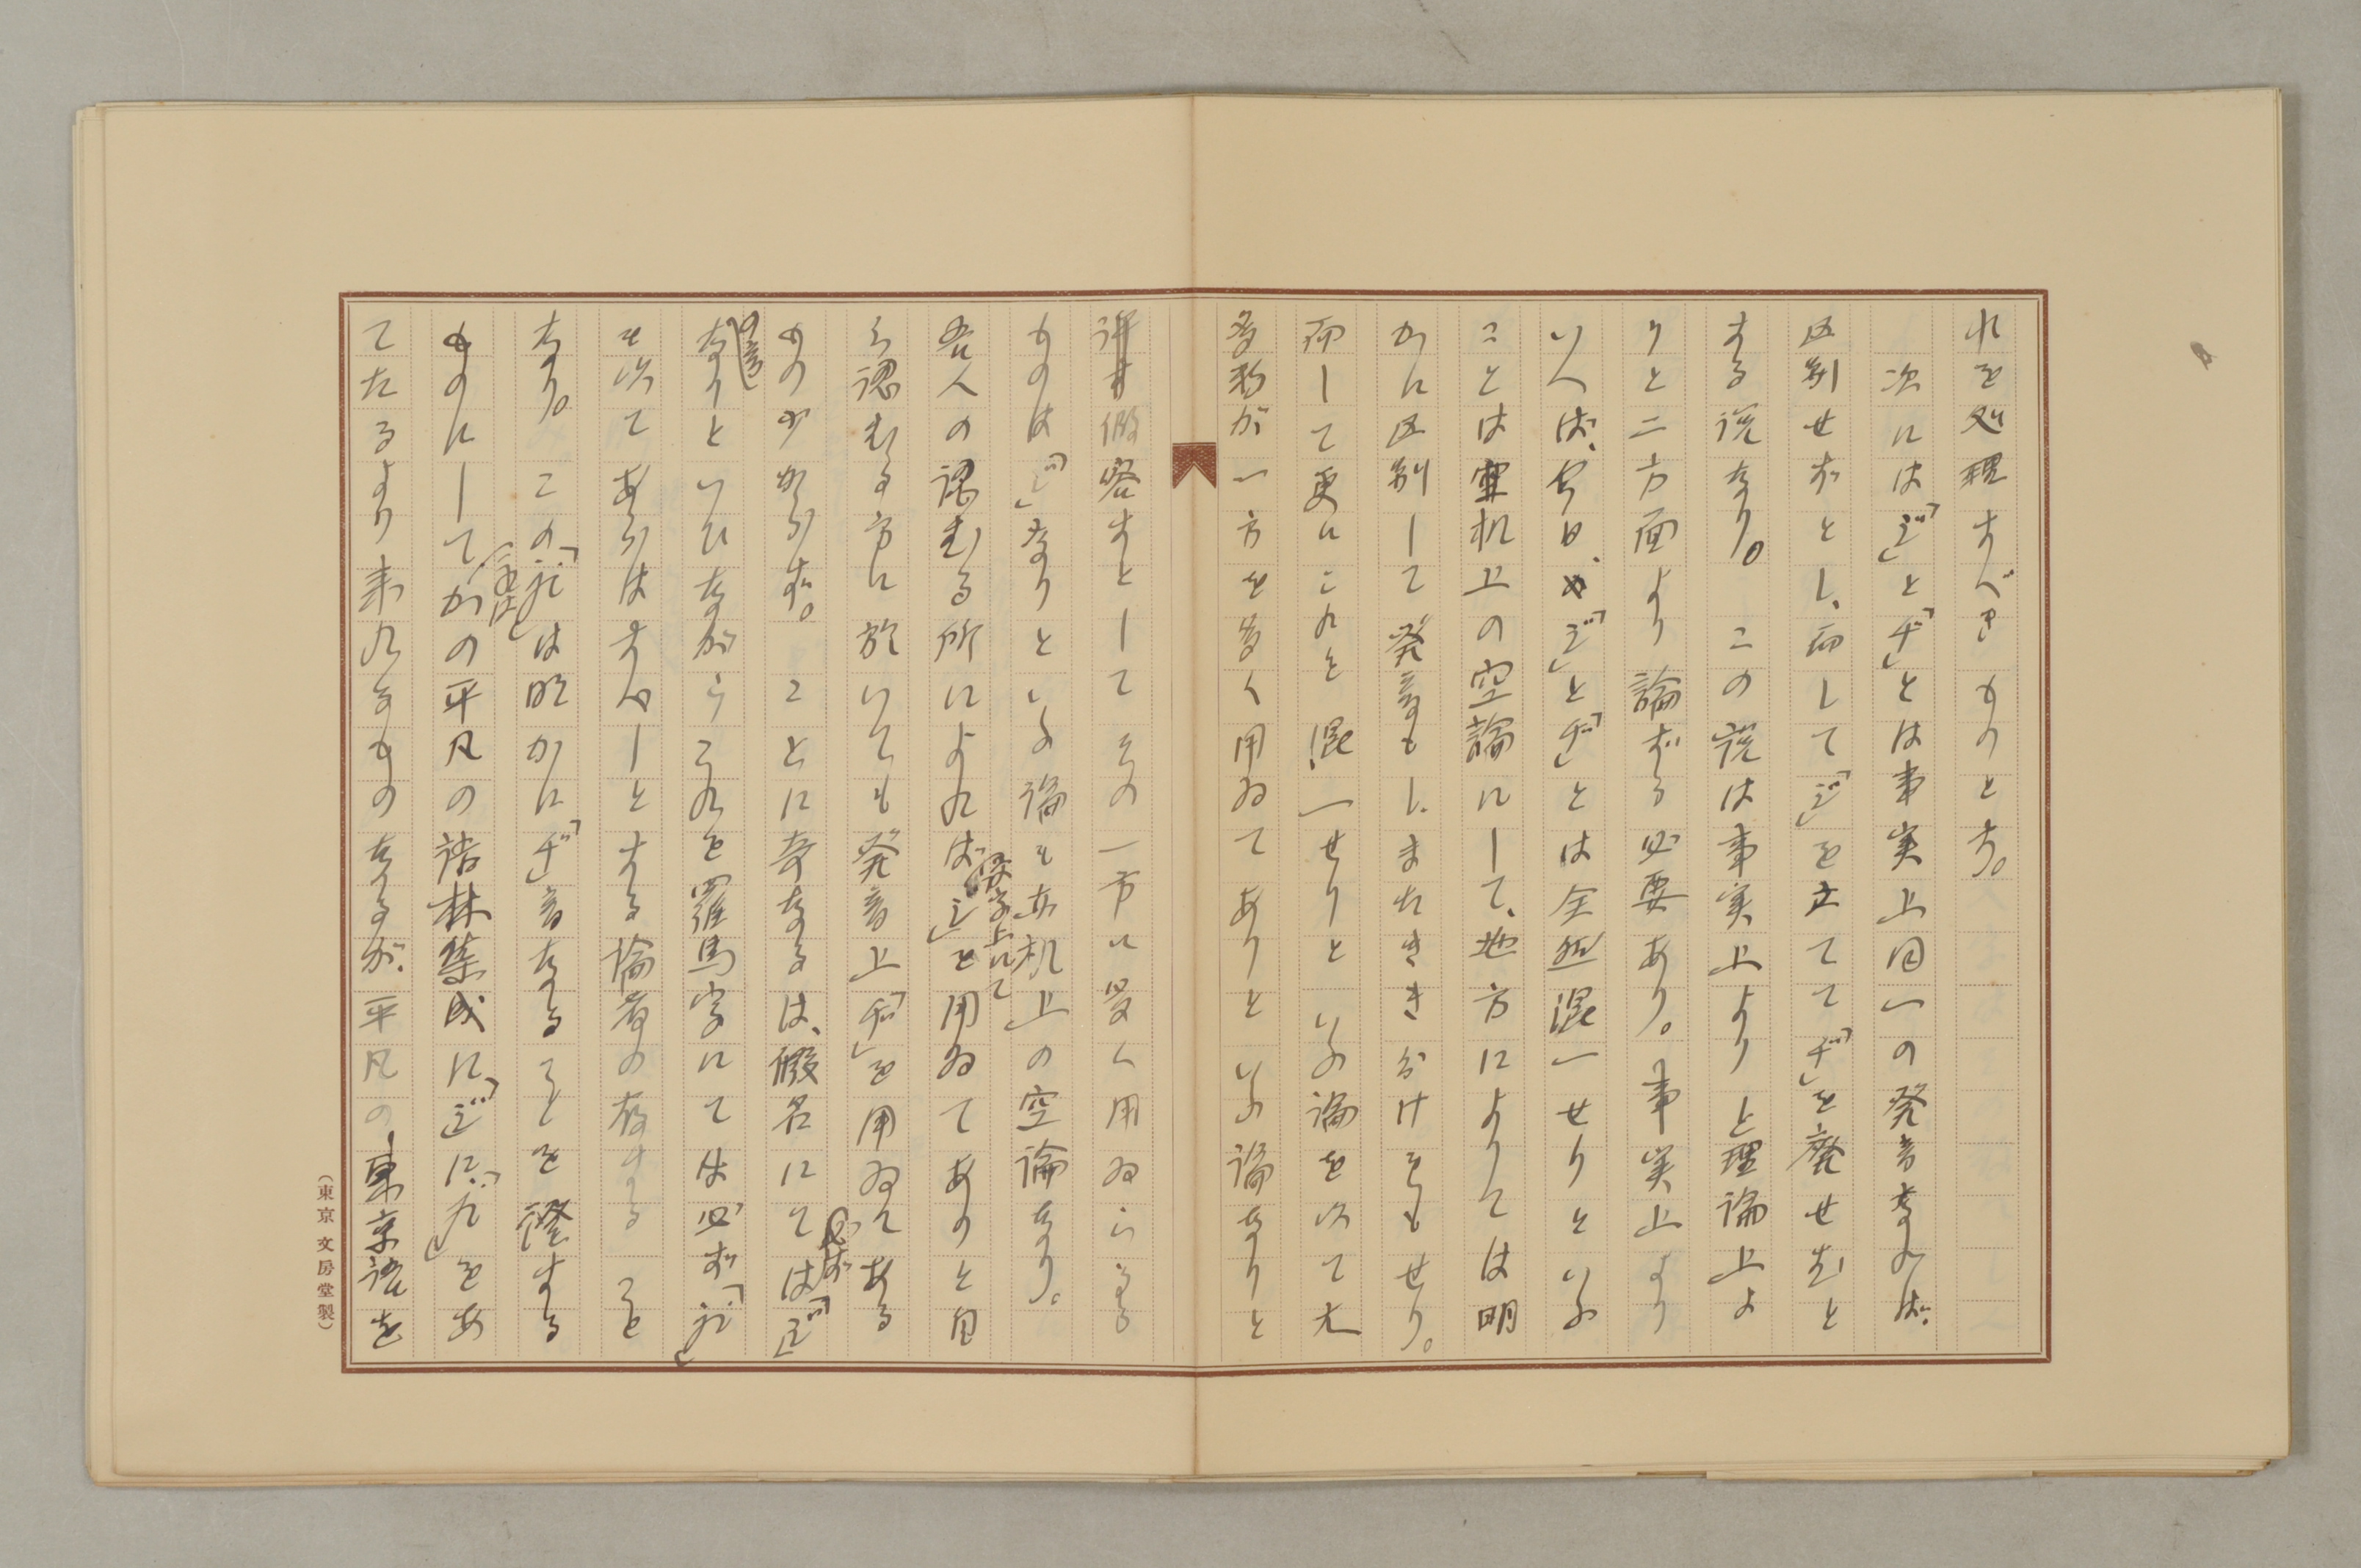 れを処理すべきものとす。
次には「ジ」と「ヂ」とは事実上同一の発音なれば、
区別せずとし、而して「ジ」を立てて「ヂ」を廃せむと
する説なり。この説は事実上よりと理論上よ
りと二方面より論ずる必要あり。事実上より
いへば、今日、「ジ」と「ヂ」とは全然混一せりといふ
ことは机上の空論にして、地方によりては明
かに区別して発音もし、またききわけをもせり。
而して更にこれを混一せりといふ論を以て大
多数が一方を多く用ゐてありといふ論なりと
仮容すとしてその一方に多く用ゐらるる
ものは「ジ」なりといふ論も亦机上の空論なり。
吾人の認むる所によれば文字上にて「ジ」を用ゐてありと自
ら認むる方に於いても発音上「ヂ」を用ゐてある
もの少からず。ことに奇なるは、仮名にては必ず「ジ」
の音なりといひながらこれを羅馬字にては必ず「
を以てあらはすべしとする論者の存すること
なり。この「」は明かに「ヂ」音なることを證する
ものにしてかの平凡の諸林集成に「ジ」に「」をあ
てたるより来れるものなるが、平凡の東京語を
(東京 文房堂製)